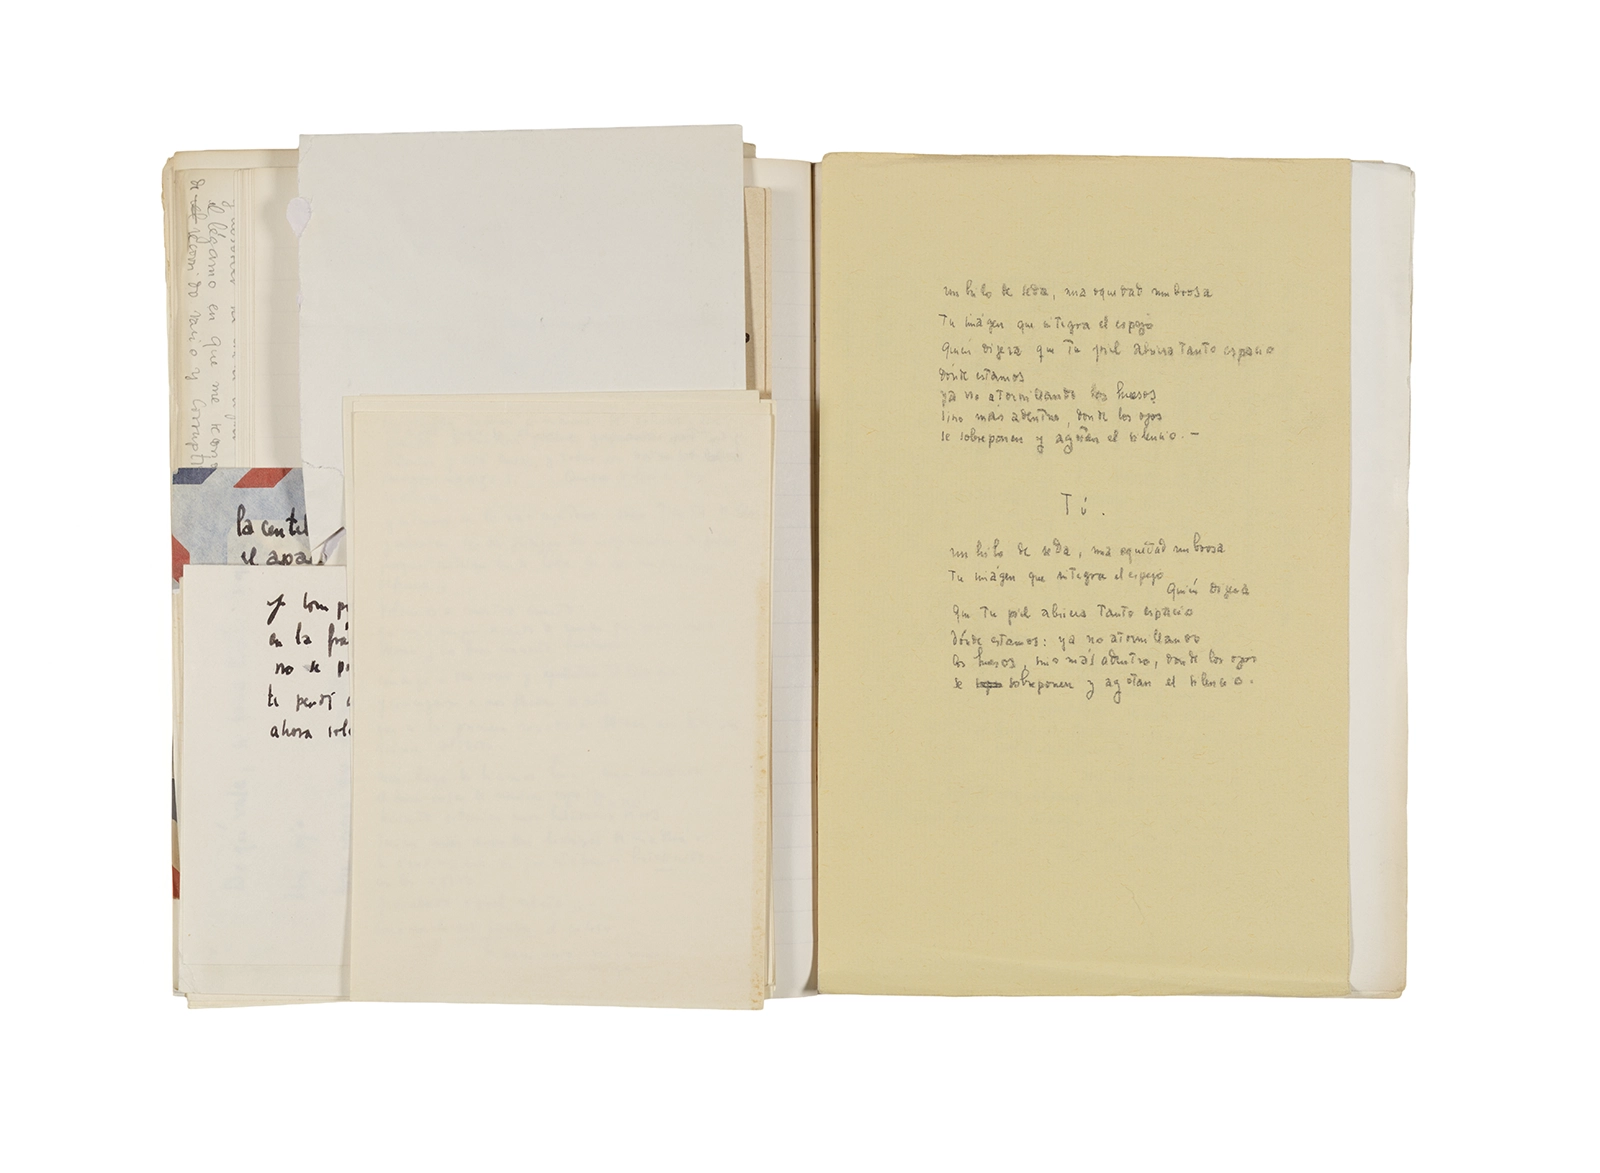 de recorrido vacio y corrupti
légamo en que me
la centel
el apa
y tom pr
en la frá
no se p
te perdí
ahora solo
un hilo de seda, una oquedad umbrosa
Tu imágen que integra el espejo
Quién dijera que tu piel abriera tanto espacio
dónde estamos
ya no atornillando los huesos
sino más adentro, donde los ojos
se sobreponen y agotan el silencio. —
Tú.
un hilo de seda, una oquedad umbrosa
Tu imágen que integra el espejo
Quién dijera
que tu piel abriera tanto espacio
dónde estamos: ya no atornillando
los huesos, sino más adentro, donde los ojos
se sobreponen y agotan el silencio.